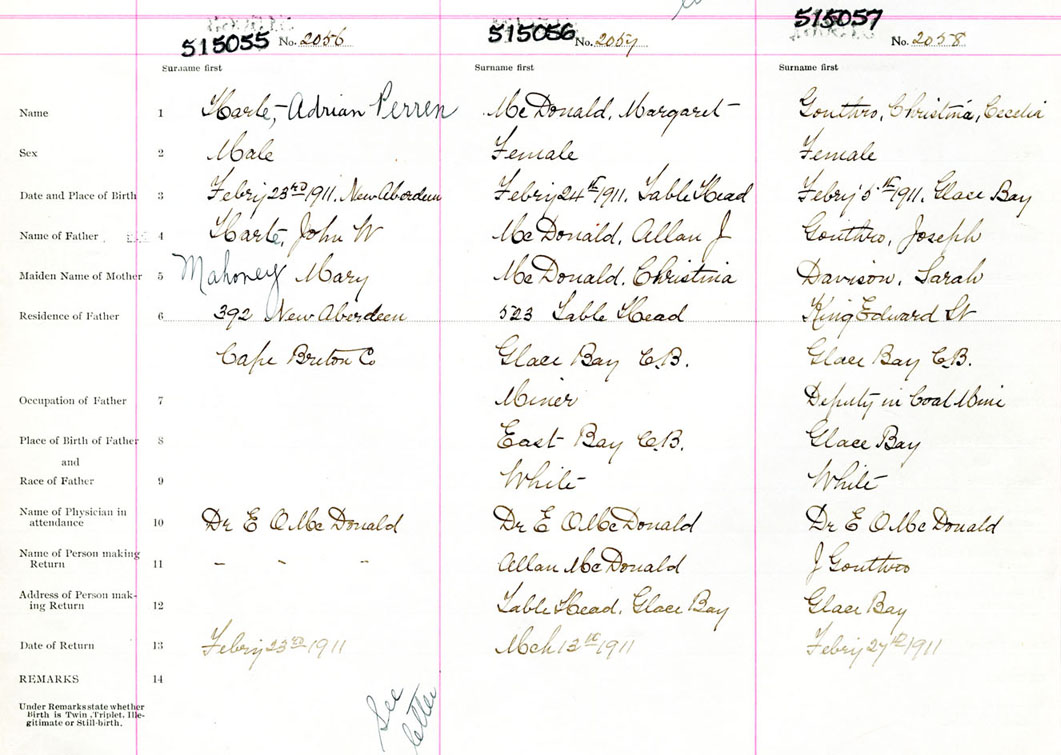 515055 No. 2056 515056 No. 2057 515057 No. 2058
Surname first Surname first Surname first
Name 1 Harte, Adrian Perren McDonald, Margaret Gouthro, Christina, Cecelia
Sex 2 Male Female Female
Date and Place of Birth 3 Febry 23rd 1911. New Aberdeen Febry 24th 1911. Table Head Febry 5th 1911. Glace Bay
Name of Father 4 Harte, John W McDonald, Allan J Gouthro, Joseph
Maiden Name of Mother 5 Mahoney Mary McDonald, Christina Davison, Sarah
Residence of Father 6 392 New Aberdeen 523 Table Head King Edward St
Cape Breton Co Glace Bay C.B. Glace Bay C.B.
Occupation of Father 7 Miner Deputy in Coal Mine
Place of Birth of Father 8 East Bay C.B. Glace Bay
and
Race of Father 9 White White
Name of Physician in
attendance 10 Dr E O McDonald Dr E O McDonald Dr E O McDonald
Name of Person making
Return 11 - - - Allan McDonald J Gouthro
Address of Person mak-
ing Return 12 Table Head, Glace Bay Glace Bay
Date of Return 13 Febry 23rd 1911 Mch 13th 1911 Febry 27th 1911
REMARKS 14
Under Remarks state whether
Birth is Twin, Triplet, Ille-
gitimate or Still-birth.
See
letter